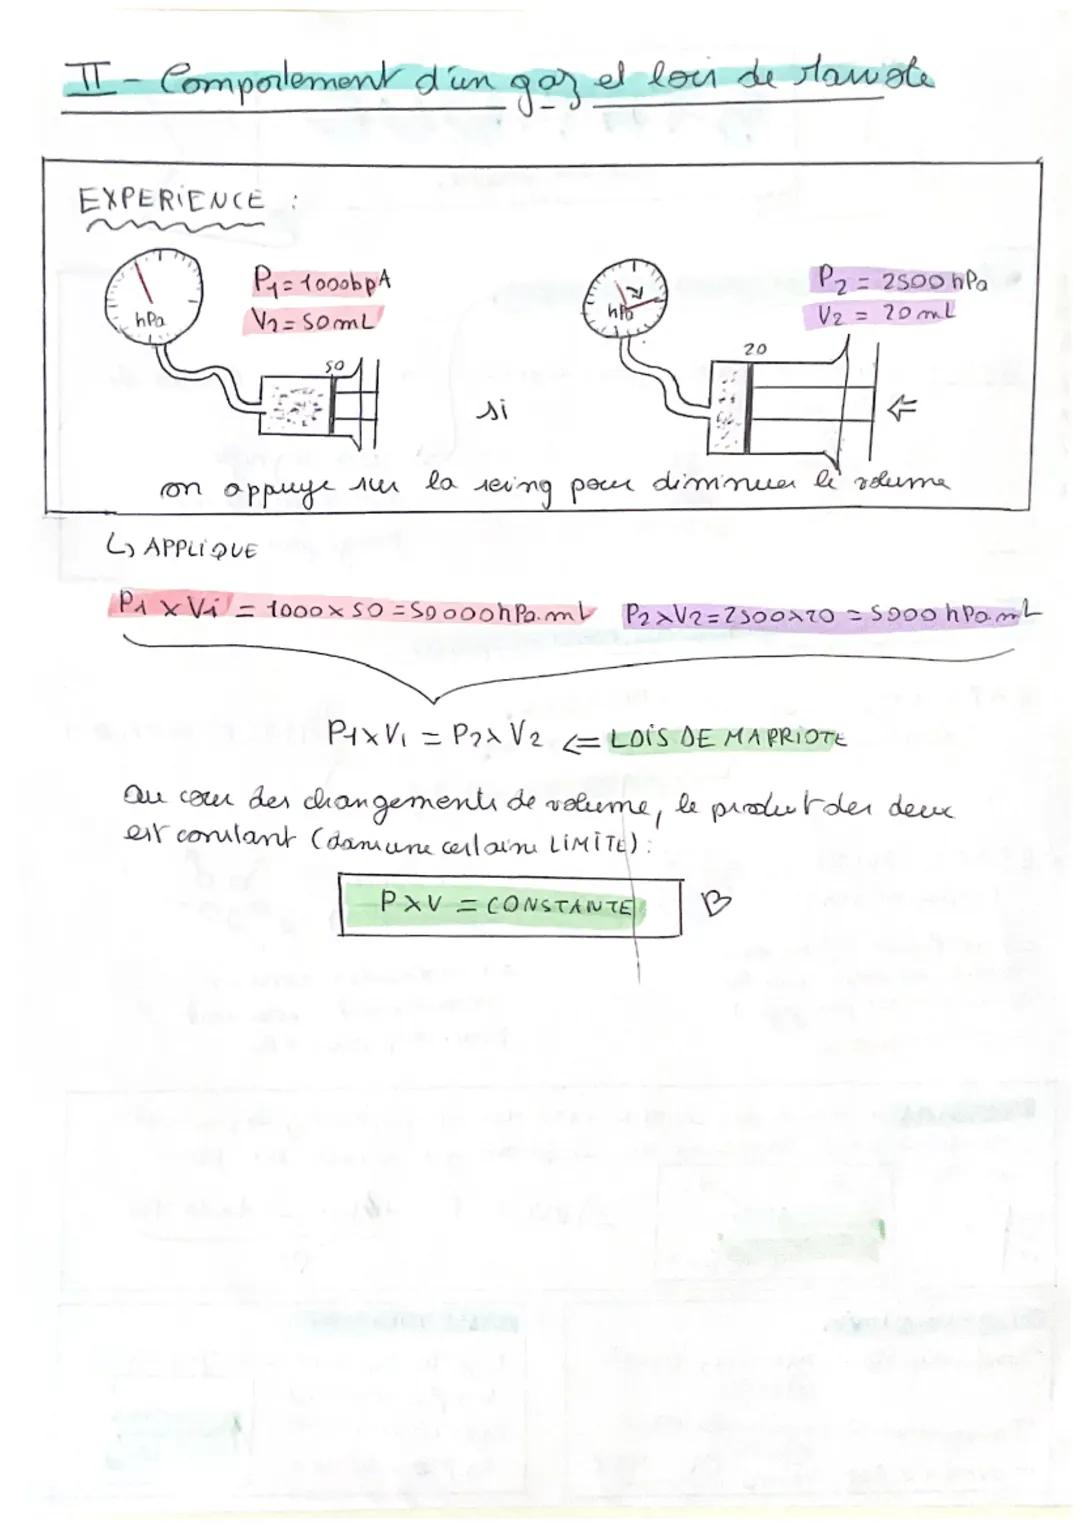 II - Comportement d'un gaz et lois de Mariote
EXPERIENCE :
P1 = 1000hpA
V2 = 50mL
hPa
50
si
P2 = 2500 hPa
V2 = 20 mL
hPa
20
on appuye sur la sering pour diminuer le volume
↳ APPLIQUE
P1 x V1 = 1000 x 50 = 50 000 hPa.mL P2xV2=2500x20 = 5000 hPa.mL
P1xV1 = P2xV2 <= LOIS DE MARRIOTE
au cour des changements de volume, le produt des deux
est constant (dans une certaine LIMITE) :
PxV = CONSTANTE